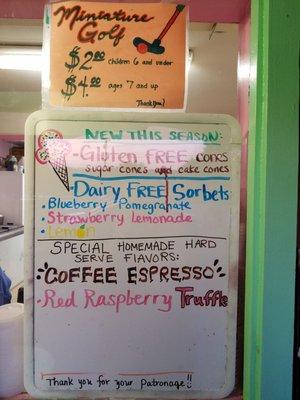 Miniature
Golf
$2.00 children 6 and under
$4.00 ages 7 and up
Thank you!
NEW THIS SEASON:
-Gluten FREE cones
sugar cones and cake cones
-Dairy FREE Sorbets
•Blueberry Pomegranate
•Strawberry Lemonade
•Lemon
SPECIAL HOMEMADE HARD
SERVE FLAVORS:
•COFFEE ESPRESSO
•Red Raspberry Truffle
Thank you for your Patronage!!